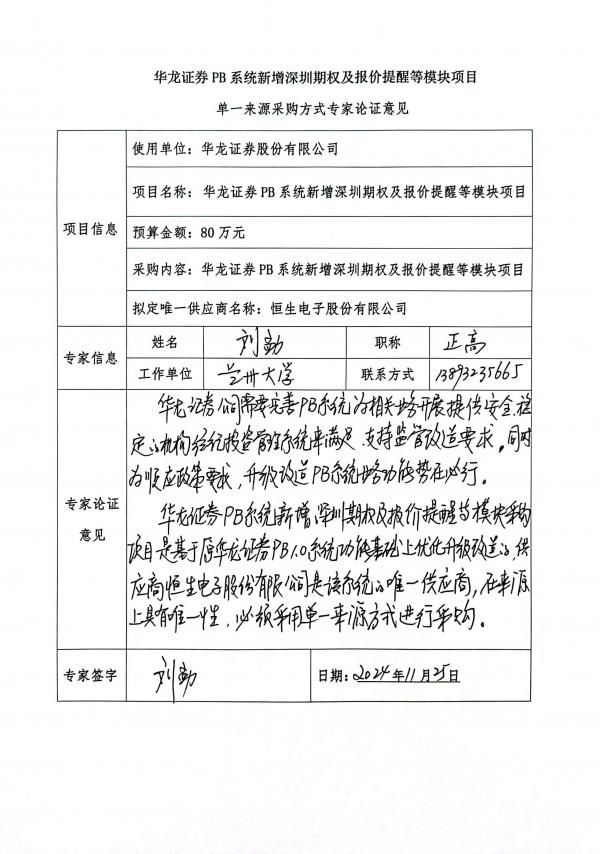 华龙证券PB系统新增深圳期权及报价提醒等模块项目
单一来源采购方式专家论证意见
项目信息
使用单位：华龙证券股份有限公司
项目名称：华龙证券PB系统新增深圳期权及报价提醒等模块项目
预算金额：80万元
采购内容：华龙证券PB系统新增深圳期权及报价提醒等模块项目
拟定唯一供应商名称：恒生电子股份有限公司
专家信息
姓名 刘勍 职称 正高
工作单位 兰州大学 联系方式 13893235665
专家论证
意见
华龙证券公司需要完善PB系统为相关业务开展提供安全、稳
定的机构经纪投资管理系统来满足、支持监管改造要求。同时
为顺应政策要求，升级改造PB系统业务功能势在必行。
华龙证券PB系统新增深圳期权及报价提醒等模块采购
项目是基于原华龙证券PB1.0系统功能基础上优化升级改造的，供
应商恒生电子股份有限公司是该系统的唯一供应商，在来源
上具有唯一性，必须采用单一来源方式进行采购。
专家签字 刘勍 日期：2024年11月25日